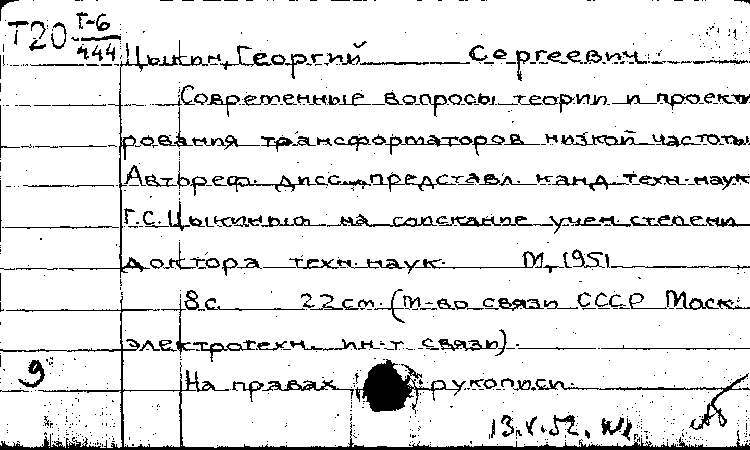 Т20 Т-6
444
Цыкин, Георгий Сергеевич.
Современные вопросы теории и проекти
рования трансформаторов низкой частоты
Автореф. дисс., представл. канд. техн. наук
Г.С. Цыкиным на соискание учен. степени
доктора техн. наук. М., 1951
8 с. 22 см. (М-во связи СССР Моск.
электротехн. ин-т связи).
9
На правах рукописи.
13.V.52.